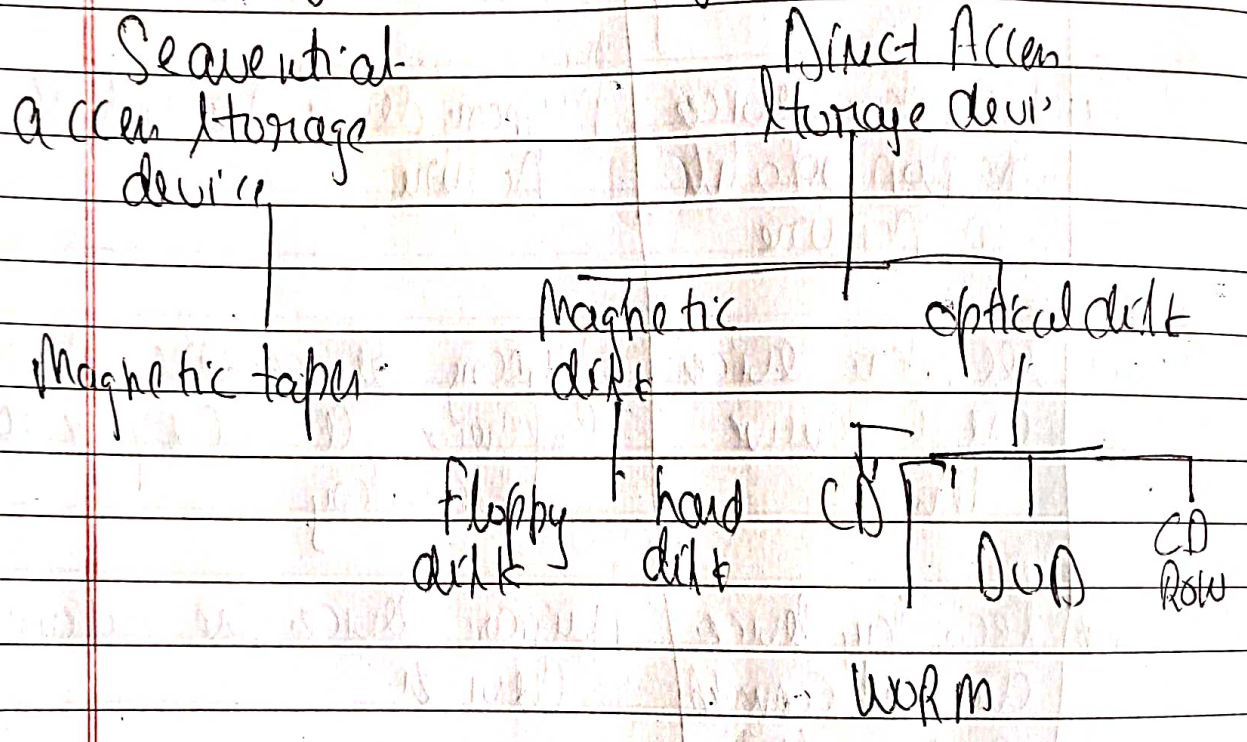 Sequential
access storage
device
Direct Access
storage devi
Magnetic tapes
Magnetic
disk
optical disk
floppy
disk
hard
disk
CD
DVD
CD
ROW
WORM